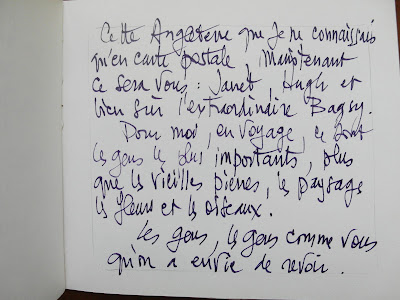 Cette Angleterre que je ne connaissais
qu'en carte postale, Maintenant
ce sera vous : Janet, Hugh et
bien sûr l'extraordinaire Bagsy.
Pour moi, en voyage, ce sont
les gens le plus importants, plus
que les vieilles pierres, les paysage
les fleurs et les oiseaux.
Les gens, les gens comme vous
qu'on a envie de revoir.